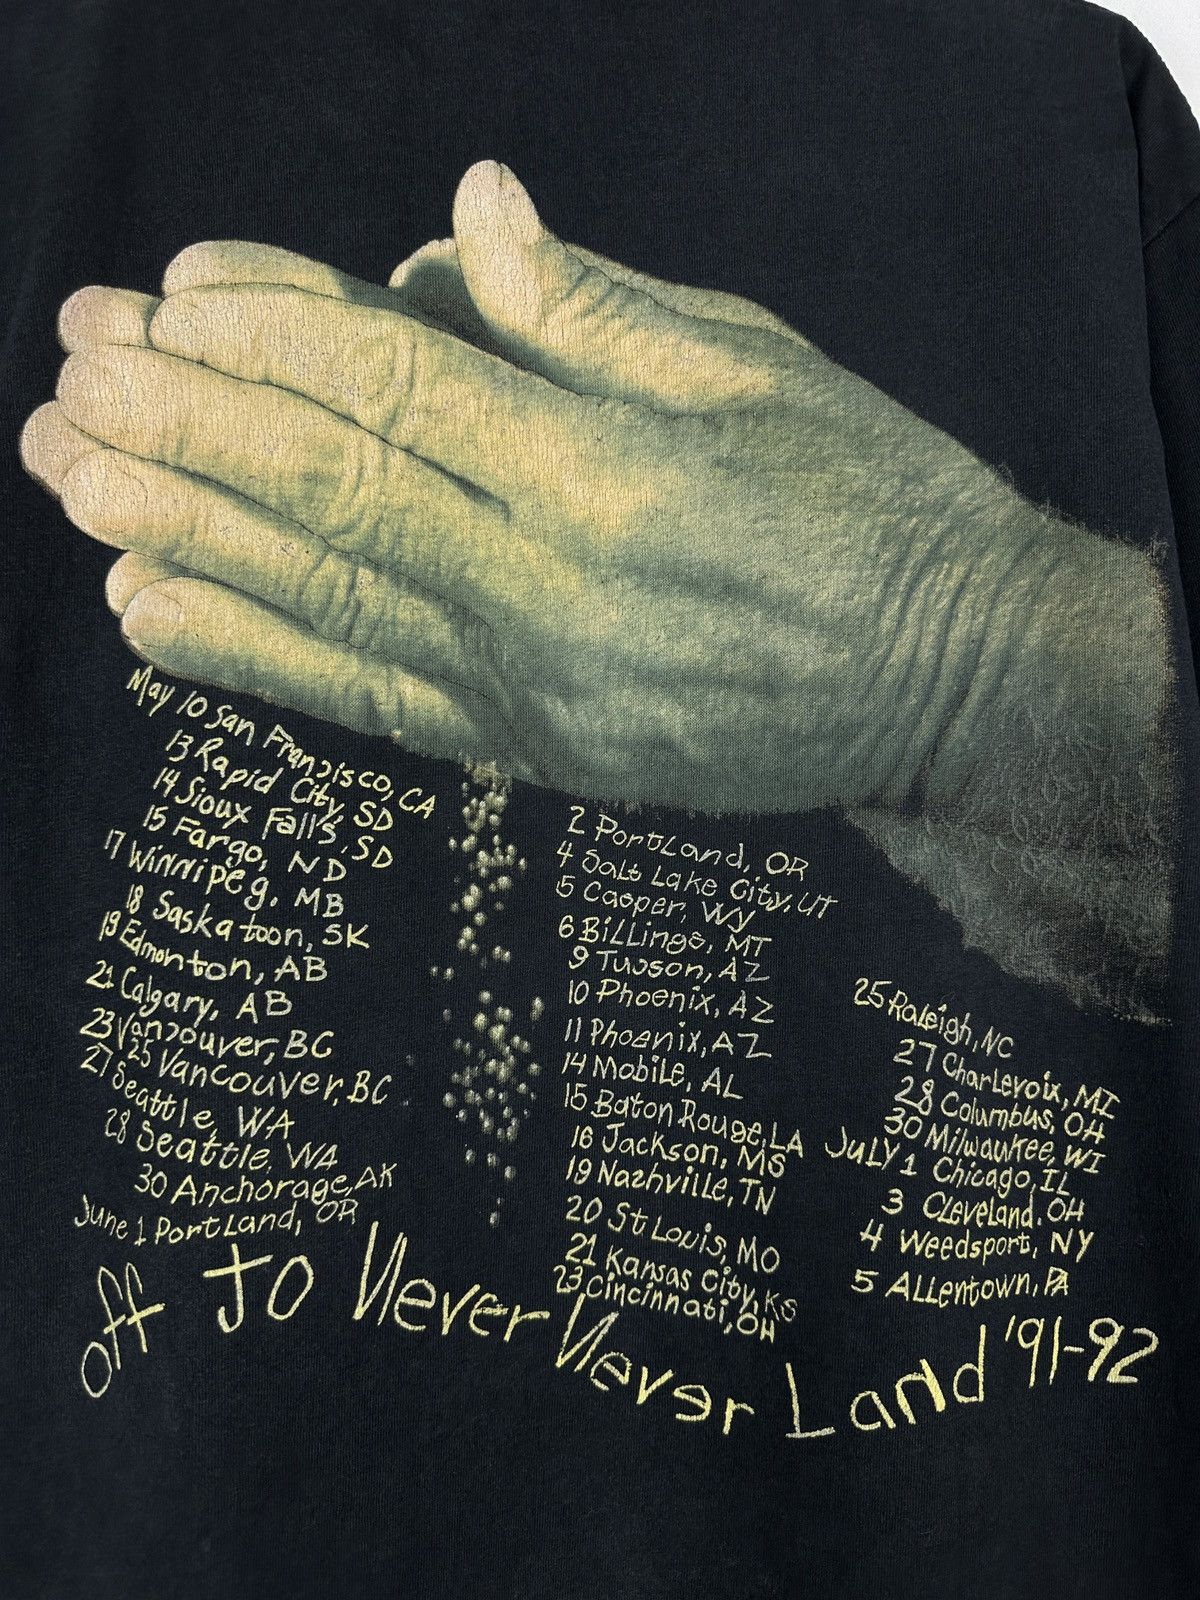 May 10 San Francisco, CA
13 Rapid City, SD
14 Sioux Falls, SD
15 Fargo, ND
17 Winnipeg, MB
18 Saskatoon, SK
19 Edmonton, AB
21 Calgary, AB
23 Vancouver, BC
25 Vancouver, BC
27 Seattle, WA
28 Seattle, WA
30 Anchorage, AK
June 1 Portland, OR
2 Portland, OR
4 Salt Lake City, UT
5 Casper, Wy
6 Billings, MT
9 Tucson, AZ
10 Phoenix, AZ
11 Phoenix, AZ
14 Mobile, AL
15 Baton Rouge, LA
16 Jackson, MS
19 Nashville, TN
20 St Louis, MO
21 Kansas City, KS
23 Cincinnati, OH
25 Raleigh, NC
27 Charlevoix, MI
28 Columbus, OH
30 Milwaukee, WI
July 1 Chicago, IL
3 Cleveland, OH
4 Weedsport, NY
5 Allentown, PA
off to Never Never Land '91-92